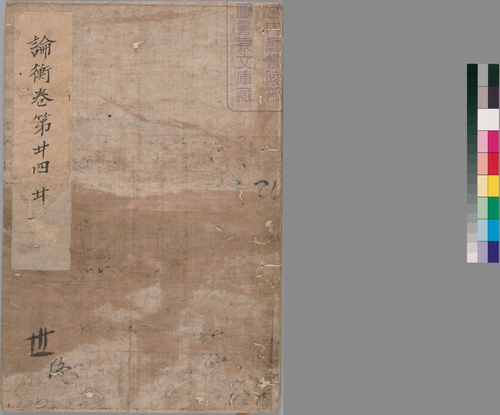 宮内廳書陵部
圖書寮文庫藏
論衡巻第廿四 廿
世